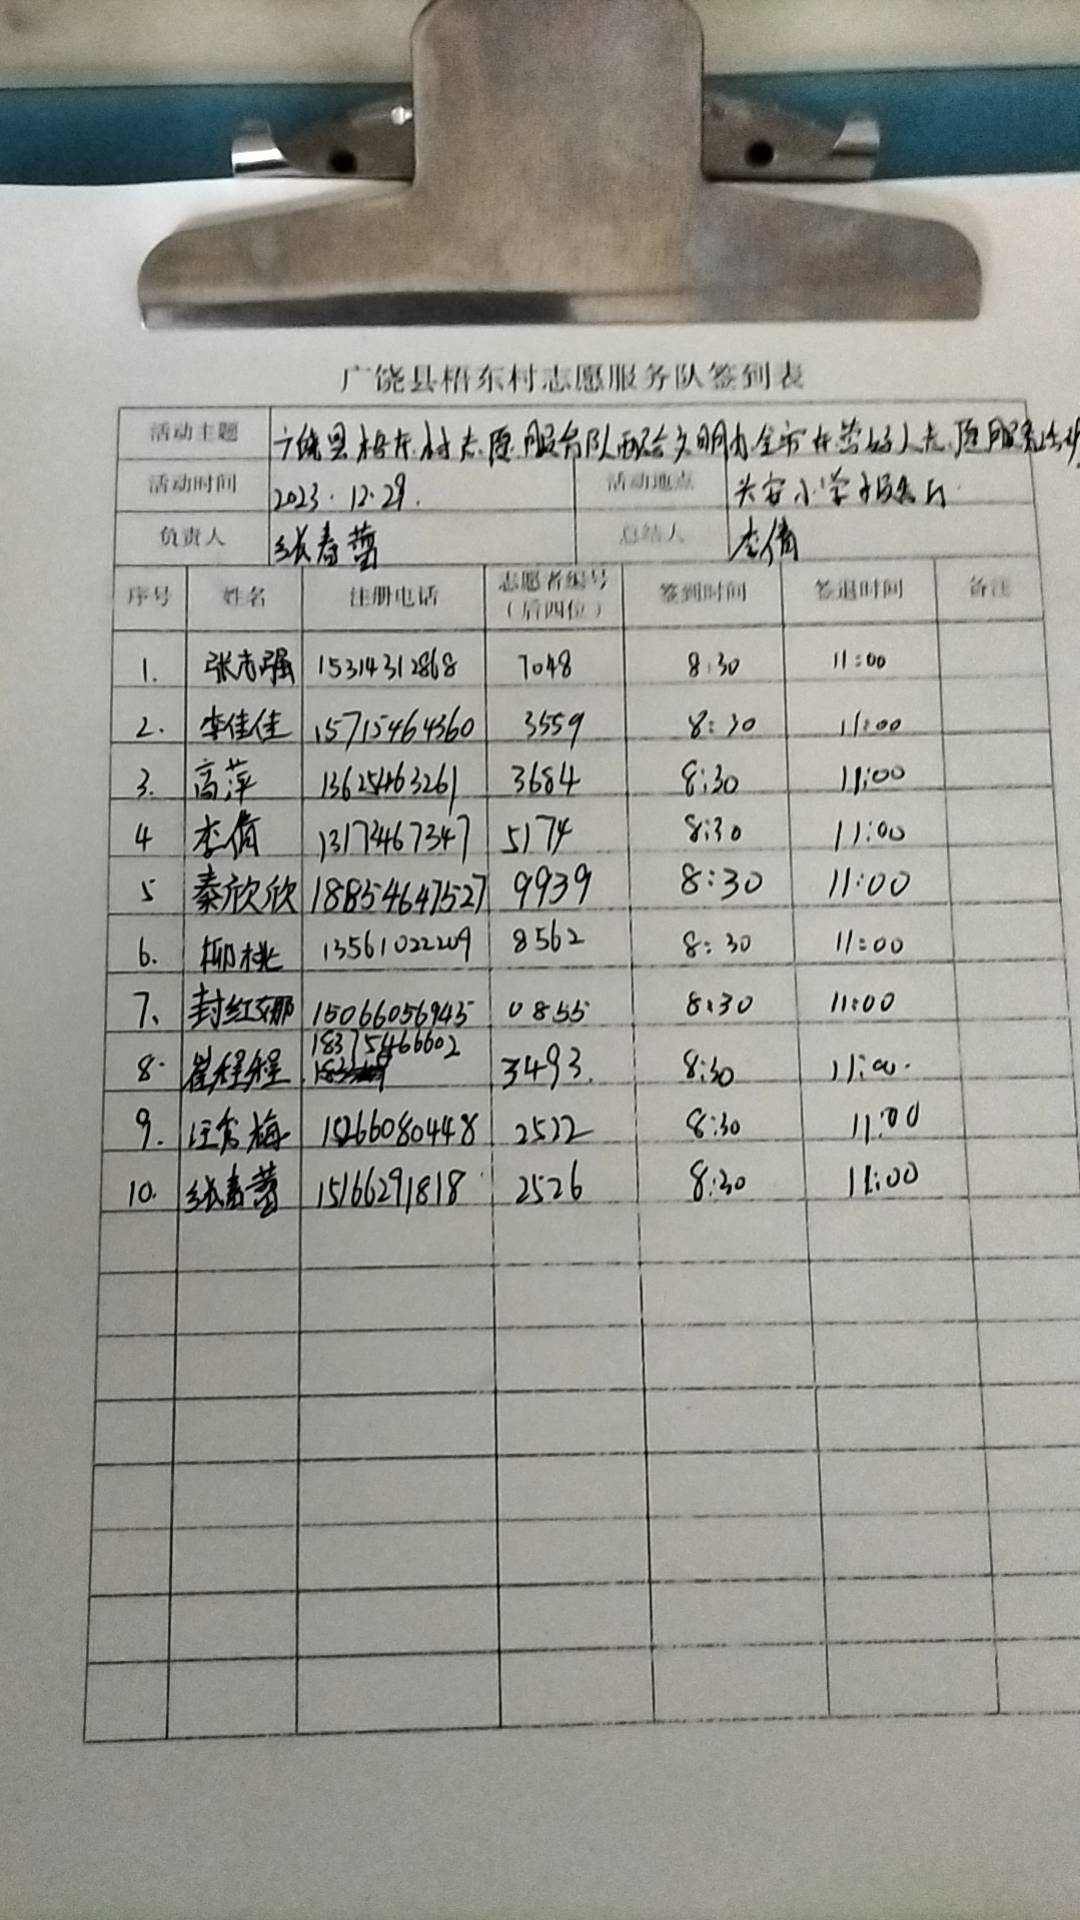 广饶县梧东村志愿服务队签到表
活动主题 广饶县梧东村志愿服务队配合文明办全市 志愿服务活动
活动时间 2023.12.29. 活动地点 兴安小学
负责人 张春蕾 总结人 李倩
序号 姓名 注册电话 志愿者编号（后四位） 签到时间 签退时间 备注
1. 张志强 15314312868 7048 8:30 11:00
2. 李佳佳 15715464360 3559 8:30 11:00
3. 高萍 13625463261 3684 8:30 11:00
4 李倩 13172467347 5174 8:30 11:00
5 秦欣欣 18854647527 9939 8:30 11:00
6. 柳桃 13561022209 8562 8:30 11:00
7、 封红娜 15066056945 0855 8:30 11:00
8. 崔程程 18375466602 3493. 8:30 11:00.
9. 汪 梅 15266080448 2522 8:30 11:00
10. 张春蕾 15166291818 2526 8:30 11:00